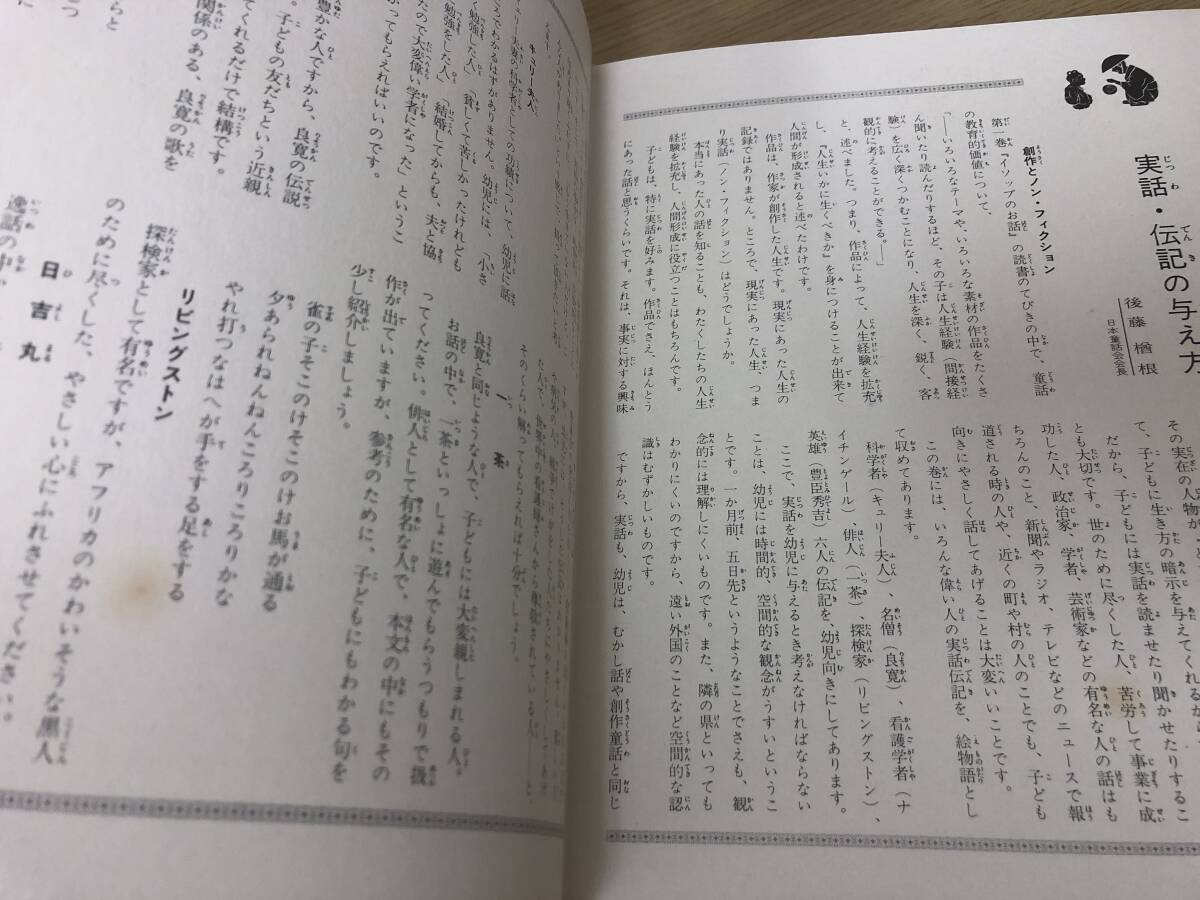 実話・伝記の与え方
後藤楢根
日本童話会会長
創作とノン・フィクション
第一巻『イソップのお話』の読書のてびきの中で、童話
の教育的価値について、
「――いろいろなテーマや、いろいろな素材の作品をたくさ
ん聞いたり読んだりするほど、その子は人生経験（間接経
験）を広く深くつかむことになり、人生を深く、鋭く、客
観的に考えることができる。――」
と、述べました。つまり、作品によって、人生経験を拡充
し、『人生いかに生くべきか』を身につけることが出来て
人間が形成されると述べたわけです。
作品は、作家が創作した人生です。現実にあった人生の
記録ではありません。ところで、現実にあった人生、つま
り実話（ノン・フィクション）はどうでしょうか。
本当にあった人の話を知ることも、わたくしたちの人生
経験を拡充し、人間形成に役立つことはもちろんです。
子どもは、特に実話を好みます。作品でさえ、ほんとう
にあった話と思うくらいです。それは、事実に対する興味
その人物が、
て、子どもに生き方の暗示を与えてくれるから
だから、子どもには実話を読ませたり聞かせたりするこ
とも大切です。世のために尽くした人、苦労して事業に成
功した人、政治家、学者、芸術家などの有名な人の話はも
ちろんのこと、新聞やラジオ、テレビなどのニュースで報
道される時の人や、近くの町や村の人のことでも、子ども
向きにやさしく話してあげることは大変いいことです。
この巻には、いろんな偉い人の実話伝記を、絵物語とし
て収めてあります。
科学者（キュリー夫人）、名僧（良寛）、看護学者（ナ
イチンゲール）、俳人（一茶）、探検家（リビングストン）、
英雄（豊臣秀吉）六人の伝記を、幼児向きにしてあります。
ここで、実話を幼児に与えるとき考えなければならない
ことは、幼児には時間的、空間的な観念がうすいというこ
とです。一か月前、五日先というようなことでさえも、観
念的には理解しにくいものです。また、隣の県といっても
わかりにくいのですから、遠い外国のことなど空間的な認
識はむずかしいものです。
ですから、実話も、幼児は、むかし話や創作童話と同じ
キュリー夫人
キュリー夫妻の科学者としての功績について、幼児に話
ころでわかるはずがありません。幼児には、「小さ
勉強した人」「貧しくて苦しかったけれども
勉強をした人」「結婚してからも、夫と協
たので大変偉い学者になった」というこ
かってもらえればいいのです。
豊かな人ですから、良寛の伝説
。子どもの友だちという近親
てくれるだけで結構です。
関係のある、良寛の歌を
らと
に
た人で、世界中の看護婦さんから尊敬されている人――と、
そのくらい解ってもらえれば十分でしょう。
一茶
良寛と同じような人で、子どもには大変親しまれる人。
お話の中で、一茶といっしょに遊んでもらうつもりで扱
ってください。俳人として有名な人で、本文の中にもその
作が出ていますが、参考のために、子どもにもわかる句を
少し紹介しましょう。
雀の子そこのけそこのけお馬が通る
夕あられねんねんころりころりかな
やれ打つなはへが手をする足をする
リビングストン
探検家として有名ですが、アフリカのかわいそうな黒人
のために尽くした、やさしい心にふれさせてください。
日吉丸
逸話の中